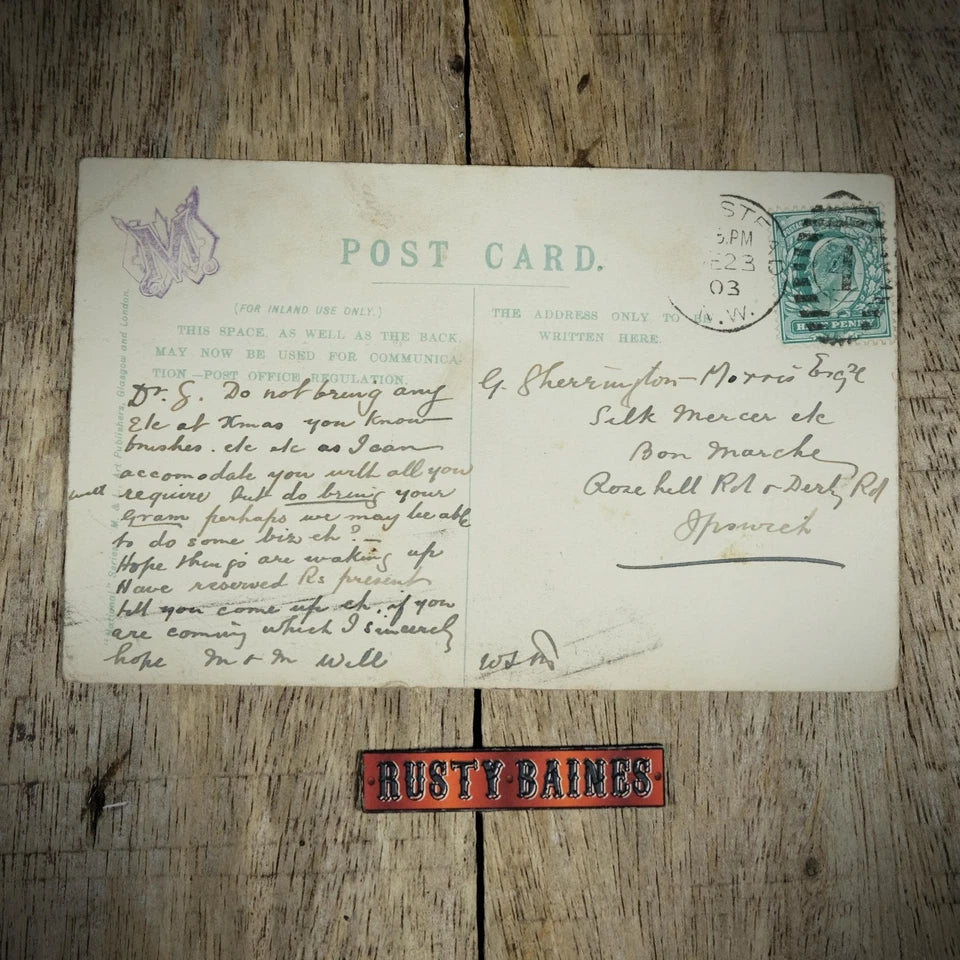 M.
POST CARD.
(FOR INLAND USE ONLY.)
THIS SPACE, AS WELL AS THE BACK,
MAY NOW BE USED FOR COMMUNICA-
TION—POST OFFICE REGULATION.
THE ADDRESS ONLY TO BE
WRITTEN HERE.
STE
5.PM
E23
03
.W.
HALF PENNY
Publishers, Glasgow and London.
Dr. G. Do not bring any
Etc at Xmas you know
brushes. etc etc as I can
accomodate you with all you
require but do bring your
well
Gram perhaps we may be able
to do some biz eh? —
Hope things are waking up
Have reserved Rs present
till you come up eh. if you
are coming which I sincerely
hope M & M Will
G. Sherrington-Morris Esqre
Silk Mercer etc
Bon Marche
Rosehill Rd & Derby Rd
Ipswich
RUSTY·BAINES